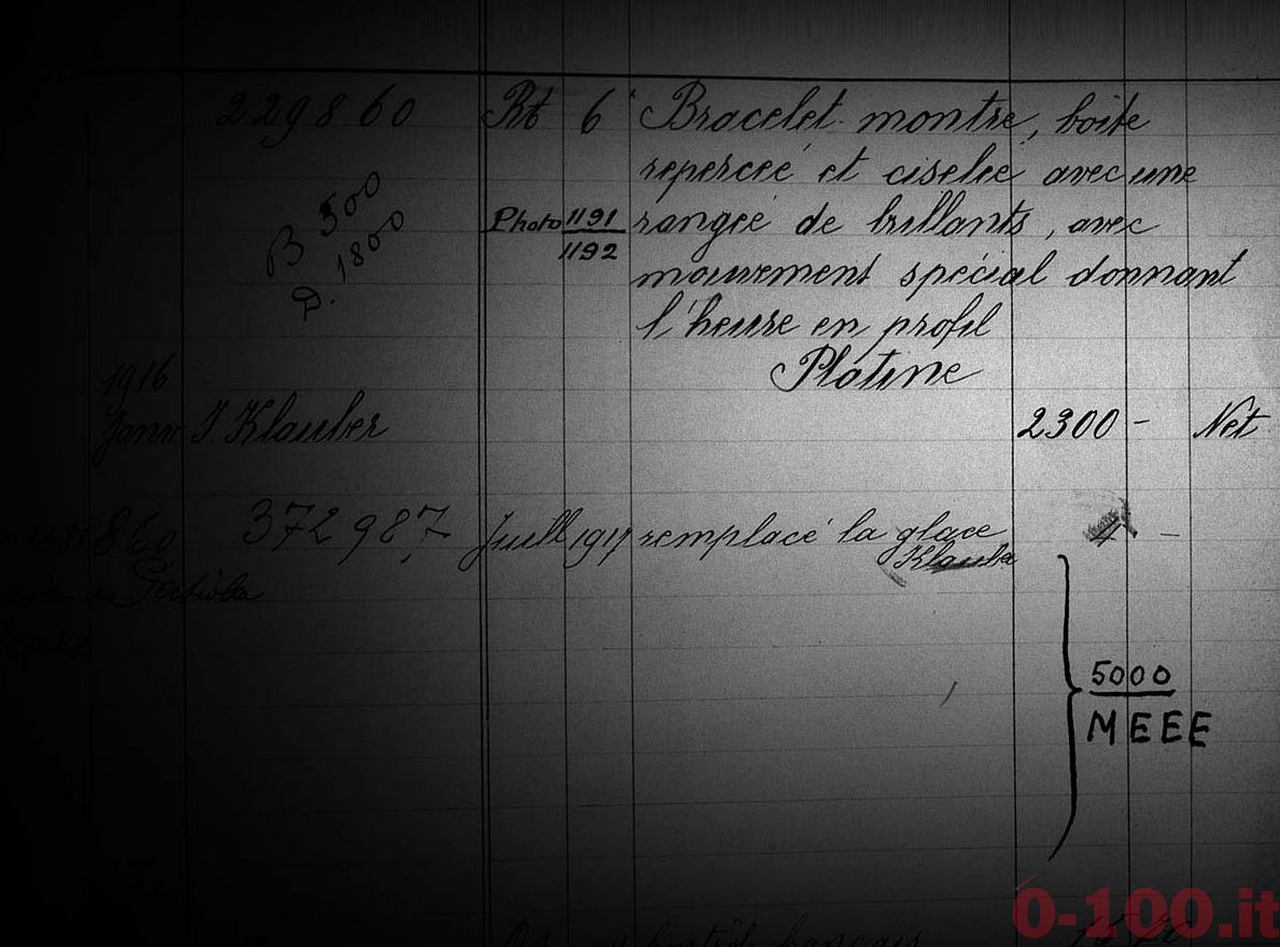 229860 Rt 6 Bracelet montre, boîte
repercée et ciselée avec une
B 500
Photo 1191 rangée de brillants, avec
D. 1800
1192
mouvement spécial donnant
l'heure en profil
Platine
1916
Janv J. Klauber 2300 - Net
860 372987 Juill 1917 remplacé la glace 4 -
Klauber
5000
MEEE
contrôle français
0-100.it